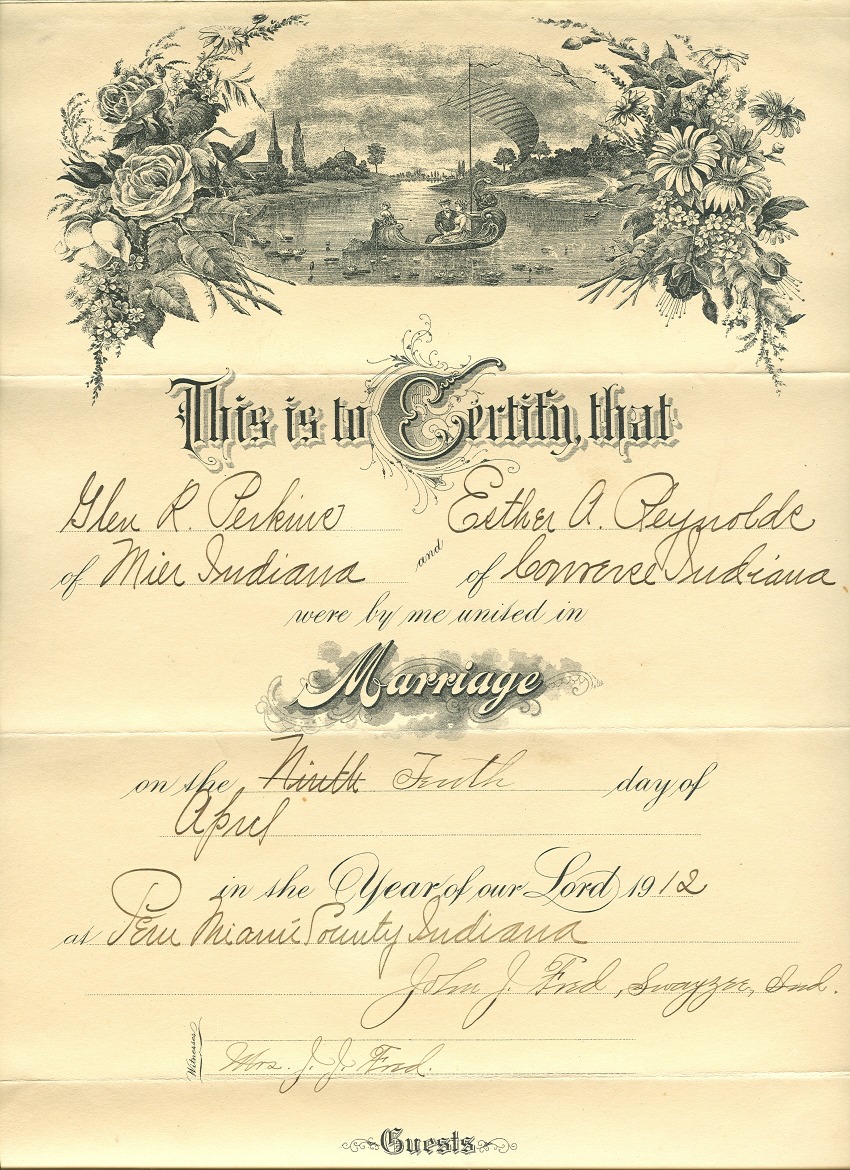 This is to Certify, that
Glen R. Perkins and Esther A. Reynolds
of Mier Indiana of Converse Indiana
were by me united in
Marriage
on the Ninth Tenth day of
April
in the Year of our Lord 1912
at Peru Miami County Indiana
John J. Fred, Swayzee, Ind.
Witnesses
Mrs. J. J. Fred.
Guests